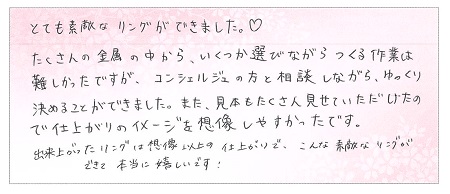 とても素敵なリングができました。♡
たくさんの金属の中から、いくつか選びながらつくる作業は
難しかったですが、コンシェルジュの方と相談しながら、ゆっくり
決めることができました。また、見本もたくさん見せていただけたの
で仕上がりのイメージを想像しやすかったです。
出来上がったリングは想像以上の仕上がりで、こんな素敵なリングが
できて本当に嬉しいです!